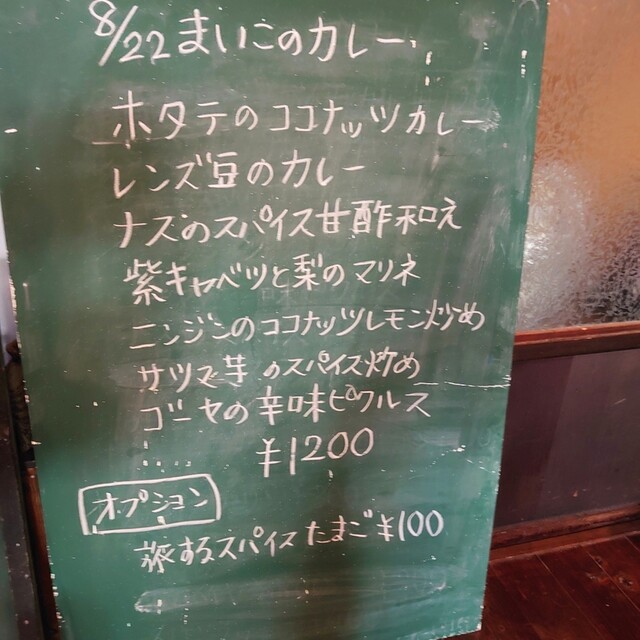 8/22 まいこのカレー
ホタテのココナッツカレー
レンズ豆のカレー
ナスのスパイス甘酢和え
紫キャベツと梨のマリネ
ニンジンのココナッツレモン炒め
サツマ芋のスパイス炒め
ゴーヤの辛味ピクルス
¥1200
オプション
旅するスパイスたまご ¥100